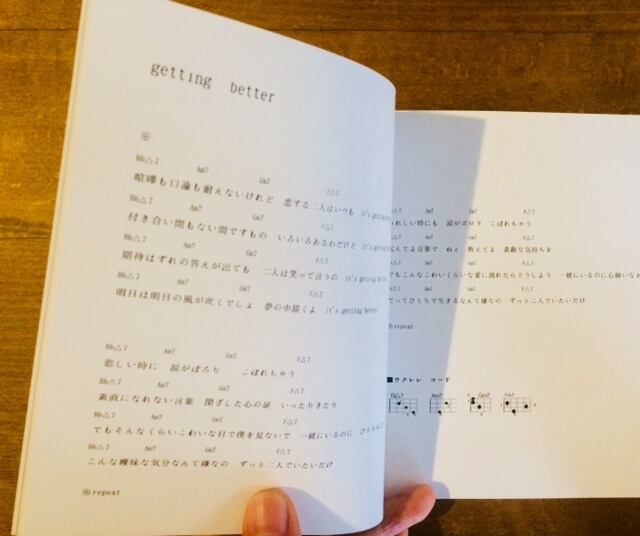 getting better
※
Bb△7 Am7 Gm7 F△7
喧嘩も口論も耐えないけれど 恋する二人はいつも it's getting
Bb△7 Am7 Gm7 F△7
付き合い間もない間ですもの いろいろあるわだけど it's getting
Bb△7 Am7 Gm7 F△7
期待はずれの答えが出ても 二人は笑って言うの it's getting better
Bb△7 Am7 Gm7 F△7
明日は明日の風が吹くでしょ 夢の中描くよ it's getting better
Bb△7 Am7 Gm7 F△7
悲しい時に 涙がぽろり こぼれちゃう
Bb△7 Am7 Gm7 F△7
素直になれない言葉 閉ざした心の扉 いったりきたり
Bb△7 Am7 Gm7 F△7
でもそんなくらいこわいな目で僕を見ないで 一緒にいるのに
Bb△7 Am7 Gm7 F△7
こんな曖昧な気分なんて嫌なの ずっと二人でいたいだけ
※repeat
△7 Am7 Gm7 F△7
れしい時にも 涙がポロリ こぼれちゃう
△7 Am7 Gm7 F△7
伝えてよ言葉で ねぇ 教えてよ 素敵な気持ちを
Am7 Gm7 F△7
でもこんなこわいくらいな愛に溺れたらどうしよう 一緒にいるのに心細いな
△7 Am7 Gm7 F△7
てひとりで生きるなんて嫌なの ずっと二人でいたいだけ
※repeat
■ウクレレ コード
Bb△7 Am7 Gm7 F△7